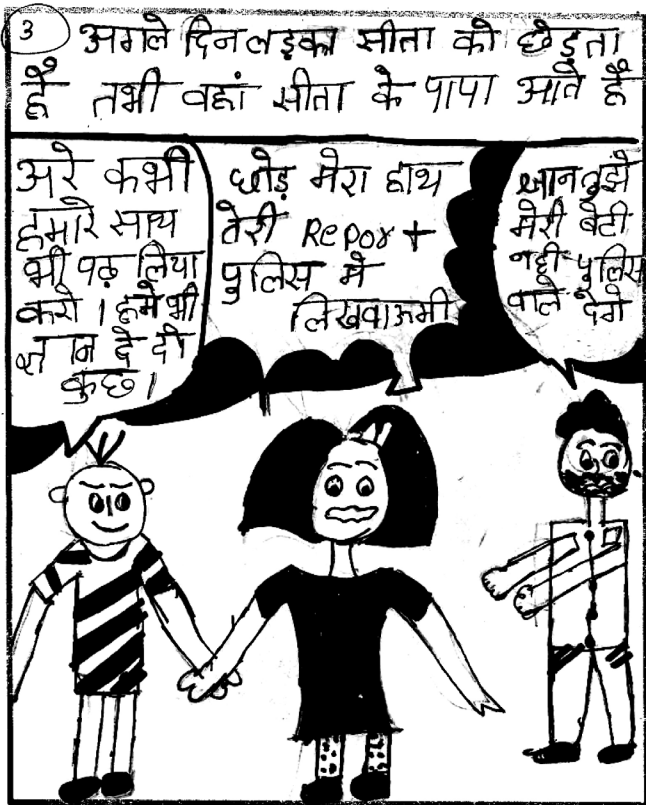 3
अगले दिन लड़का सीता को छेड़ता
है तभी वहां सीता के पापा आते है
अरे कभी
हमारे साथ
भी पढ़ लिया
करो । हमे भी
ज्ञान दे दो
कुछ ।
छोड़ मेरा हाथ
तेरी Report
पुलिस मे
लिखवाऊगी
ज्ञान तुझे
मेरी बेटी
नही पुलिस
वाले देगे